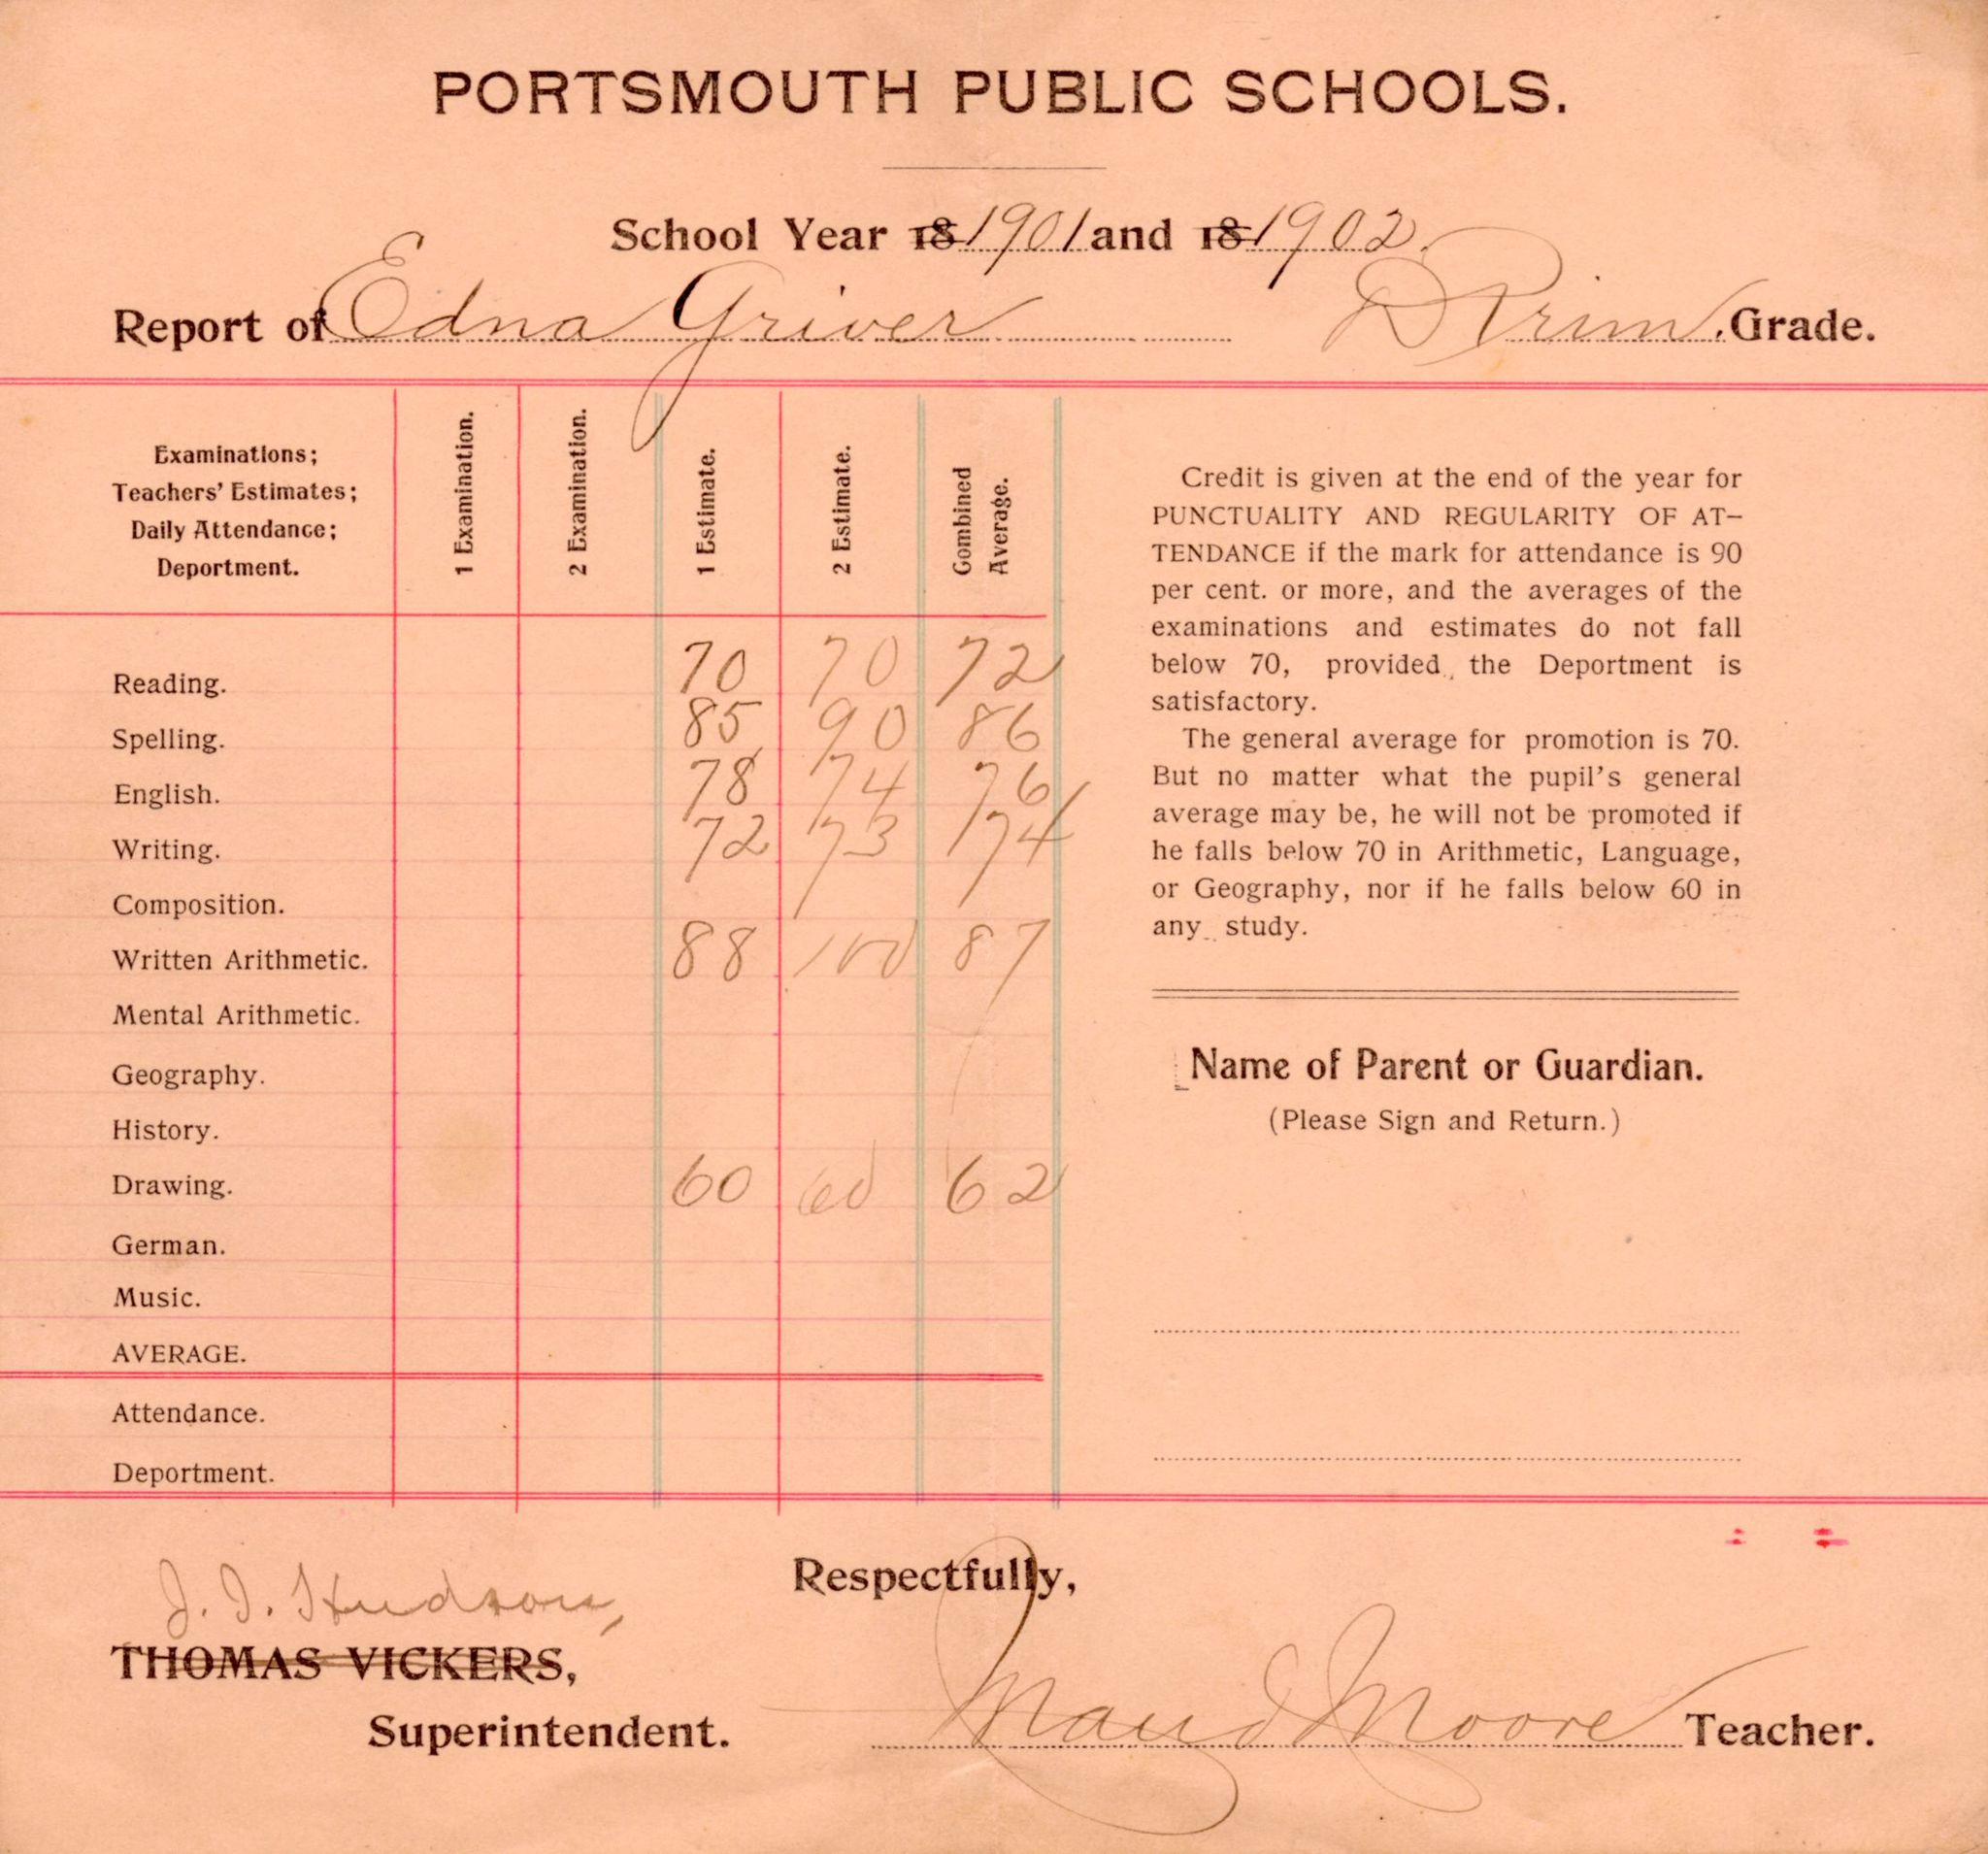 PORTSMOUTH PUBLIC SCHOOLS.
School Year 18 1901 and 18 1902.
Report of Edna Griver D Prim. Grade.
Examinations;
Teachers' Estimates;
Daily Attendance;
Department.
1 Examination.
2 Examination.
1 Estimate.
2 Estimate.
Combined
Average.
Reading. 70 70 72
Spelling. 85 90 86
English. 78 74 76
Writing. 72 73 74
Composition.
Written Arithmetic. 88 100 87
Mental Arithmetic.
Geography.
History.
Drawing. 60 60 62
German.
Music.
AVERAGE.
Attendance.
Deportment.
Credit is given at the end of the year for
PUNCTUALITY AND REGULARITY OF AT-
TENDANCE if the mark for attendance is 90
per cent. or more, and the averages of the
examinations and estimates do not fall
below 70, provided, the Deportment is
satisfactory.
The general average for promotion is 70.
But no matter what the pupil's general
average may be, he will not be promoted if
he falls below 70 in Arithmetic, Language,
or Geography, nor if he falls below 60 in
any study.
Name of Parent or Guardian.
(Please Sign and Return.)
Respectfully,
J. I. Hudson,
THOMAS VICKERS,
Superintendent.
Maud Moore Teacher.